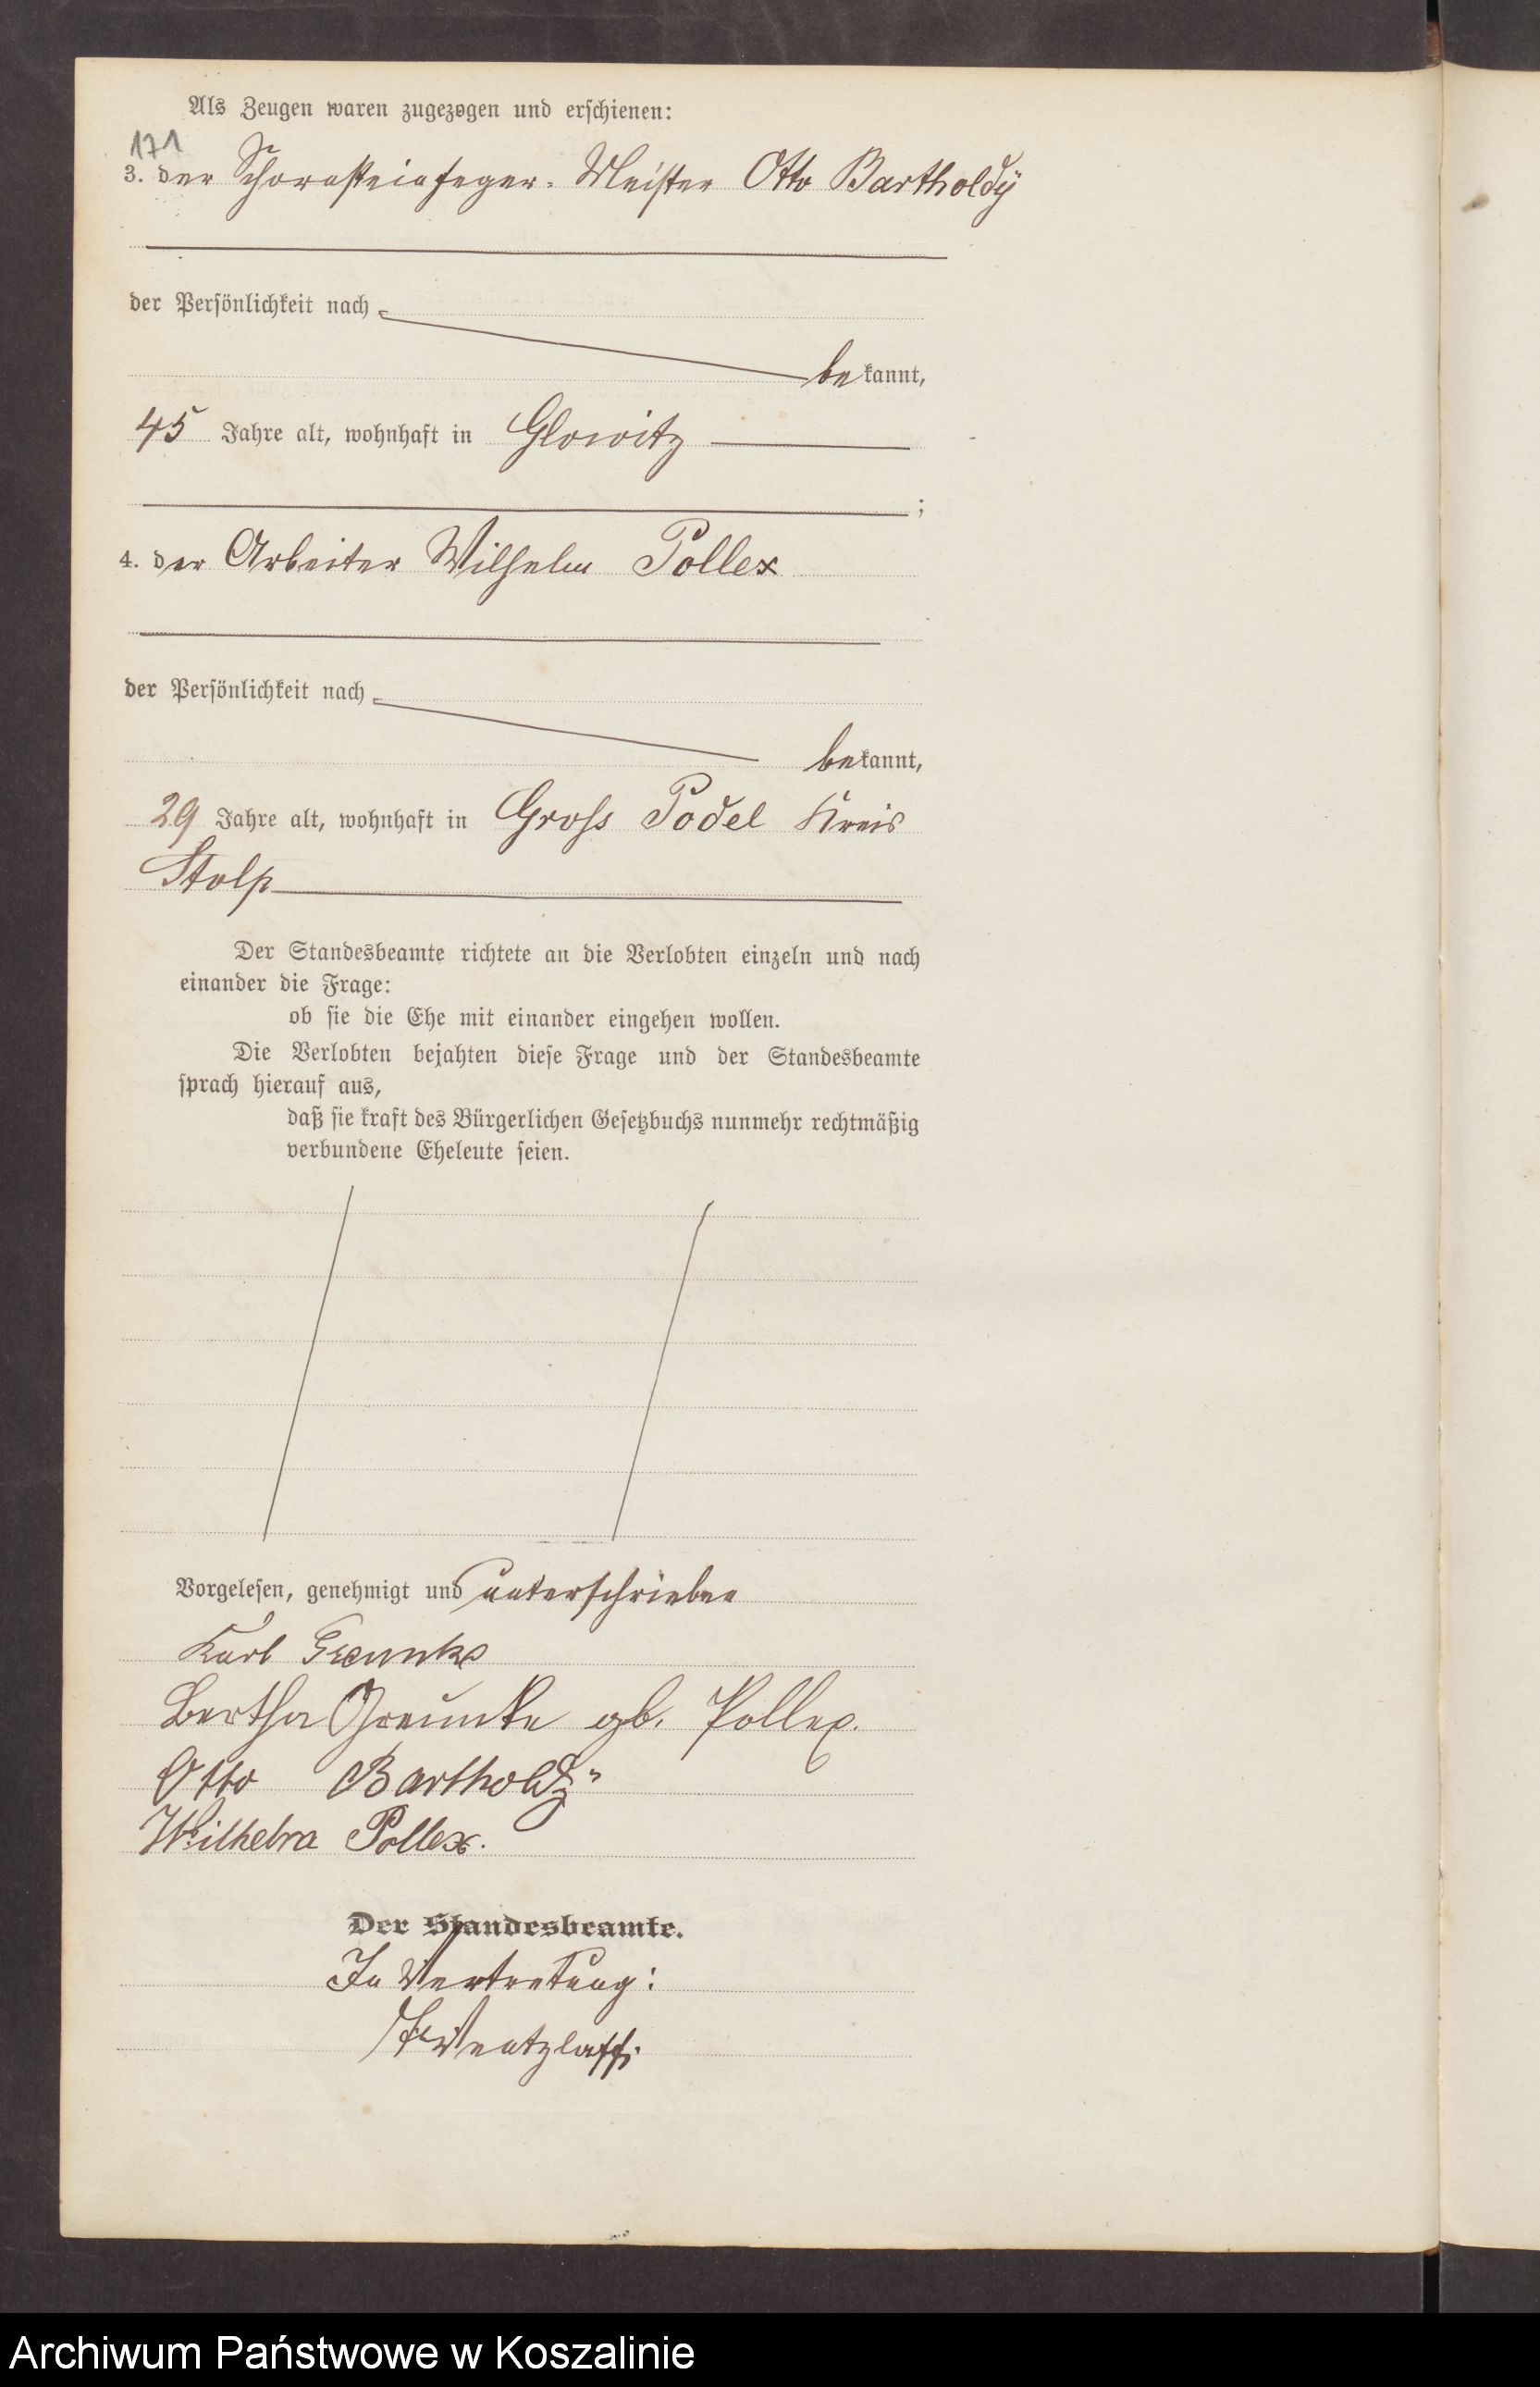 Als Zeugen waren zugezogen und erschienen:
171
3. der Schornsteinfeger-Meister Otto Bartholdÿ
der Persönlichkeit nach
bekannt,
45 Jahre alt, wohnhaft in Glowitz
;
4. der Arbeiter Wilhelm Pollex
der Persönlichkeit nach
bekannt,
29 Jahre alt, wohnhaft in Gross Podel Kreis
Stolp
Der Standesbeamte richtete an die Verlobten einzeln und nach
einander die Frage:
ob sie die Ehe mit einander eingehen wollen.
Die Verlobten bejahten diese Frage und der Standesbeamte
sprach hierauf aus,
daß sie kraft des Bürgerlichen Gesetzbuchs nunmehr rechtmäßig
verbundene Eheleute seien.
Vorgelesen, genehmigt und unterschrieben
Karl Greunke
Bertha Greunke gb. Pollex.
Otto Bartholdÿ
Wilhelm Pollex.
Der Standesbeamte.
In Vertretung:
Wentzlaff.
Archiwum Państwowe w Koszalinie